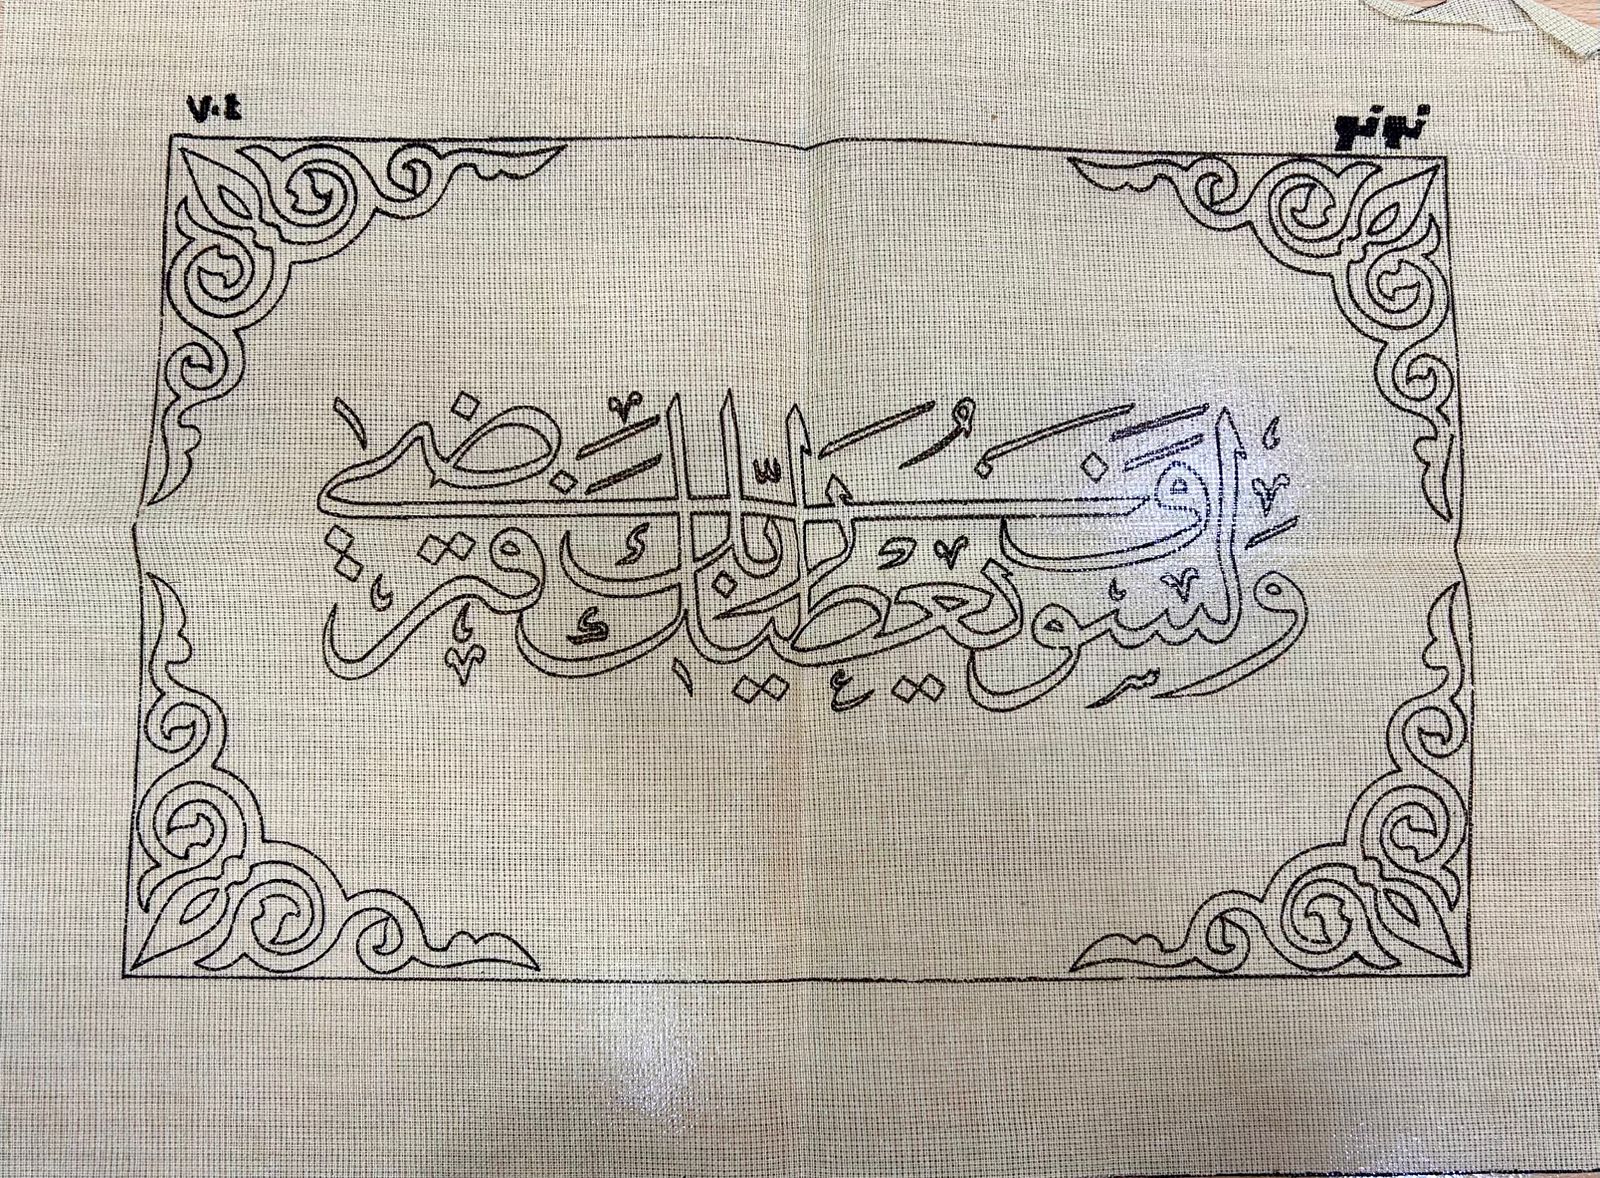 نونو
٧٠٤
ولسوف يعطيك ربك فترضى